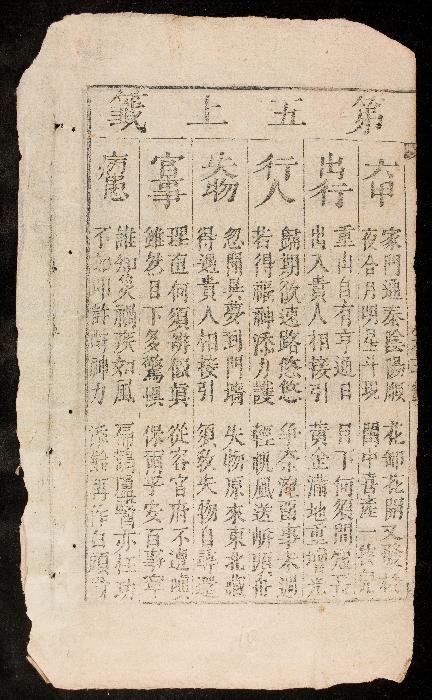 第五上籤
六甲
家門通泰陰陽順 花卸花開又發枝
夜合月明星斗現 閨中喜產一
出行
重山自有亨通日 目下何須問
出入貴人相接引 黃金滿地重增光
行人
歸期欲速路悠悠 爭奈淹留事未週
若得福神添力護 輕帆風送
失物
忽聞異夢到門墻 失物原來東北藏
得遇貴人相接引 須教失物自尋還
官事
理直何須辨假真 從容官府不遭嗔
雖然目下多驚懼 保爾平安百事寧
病患
誰知災禍疾如風 扁鵲盧醫亦枉功
不如叩許 神力 再作白頭翁